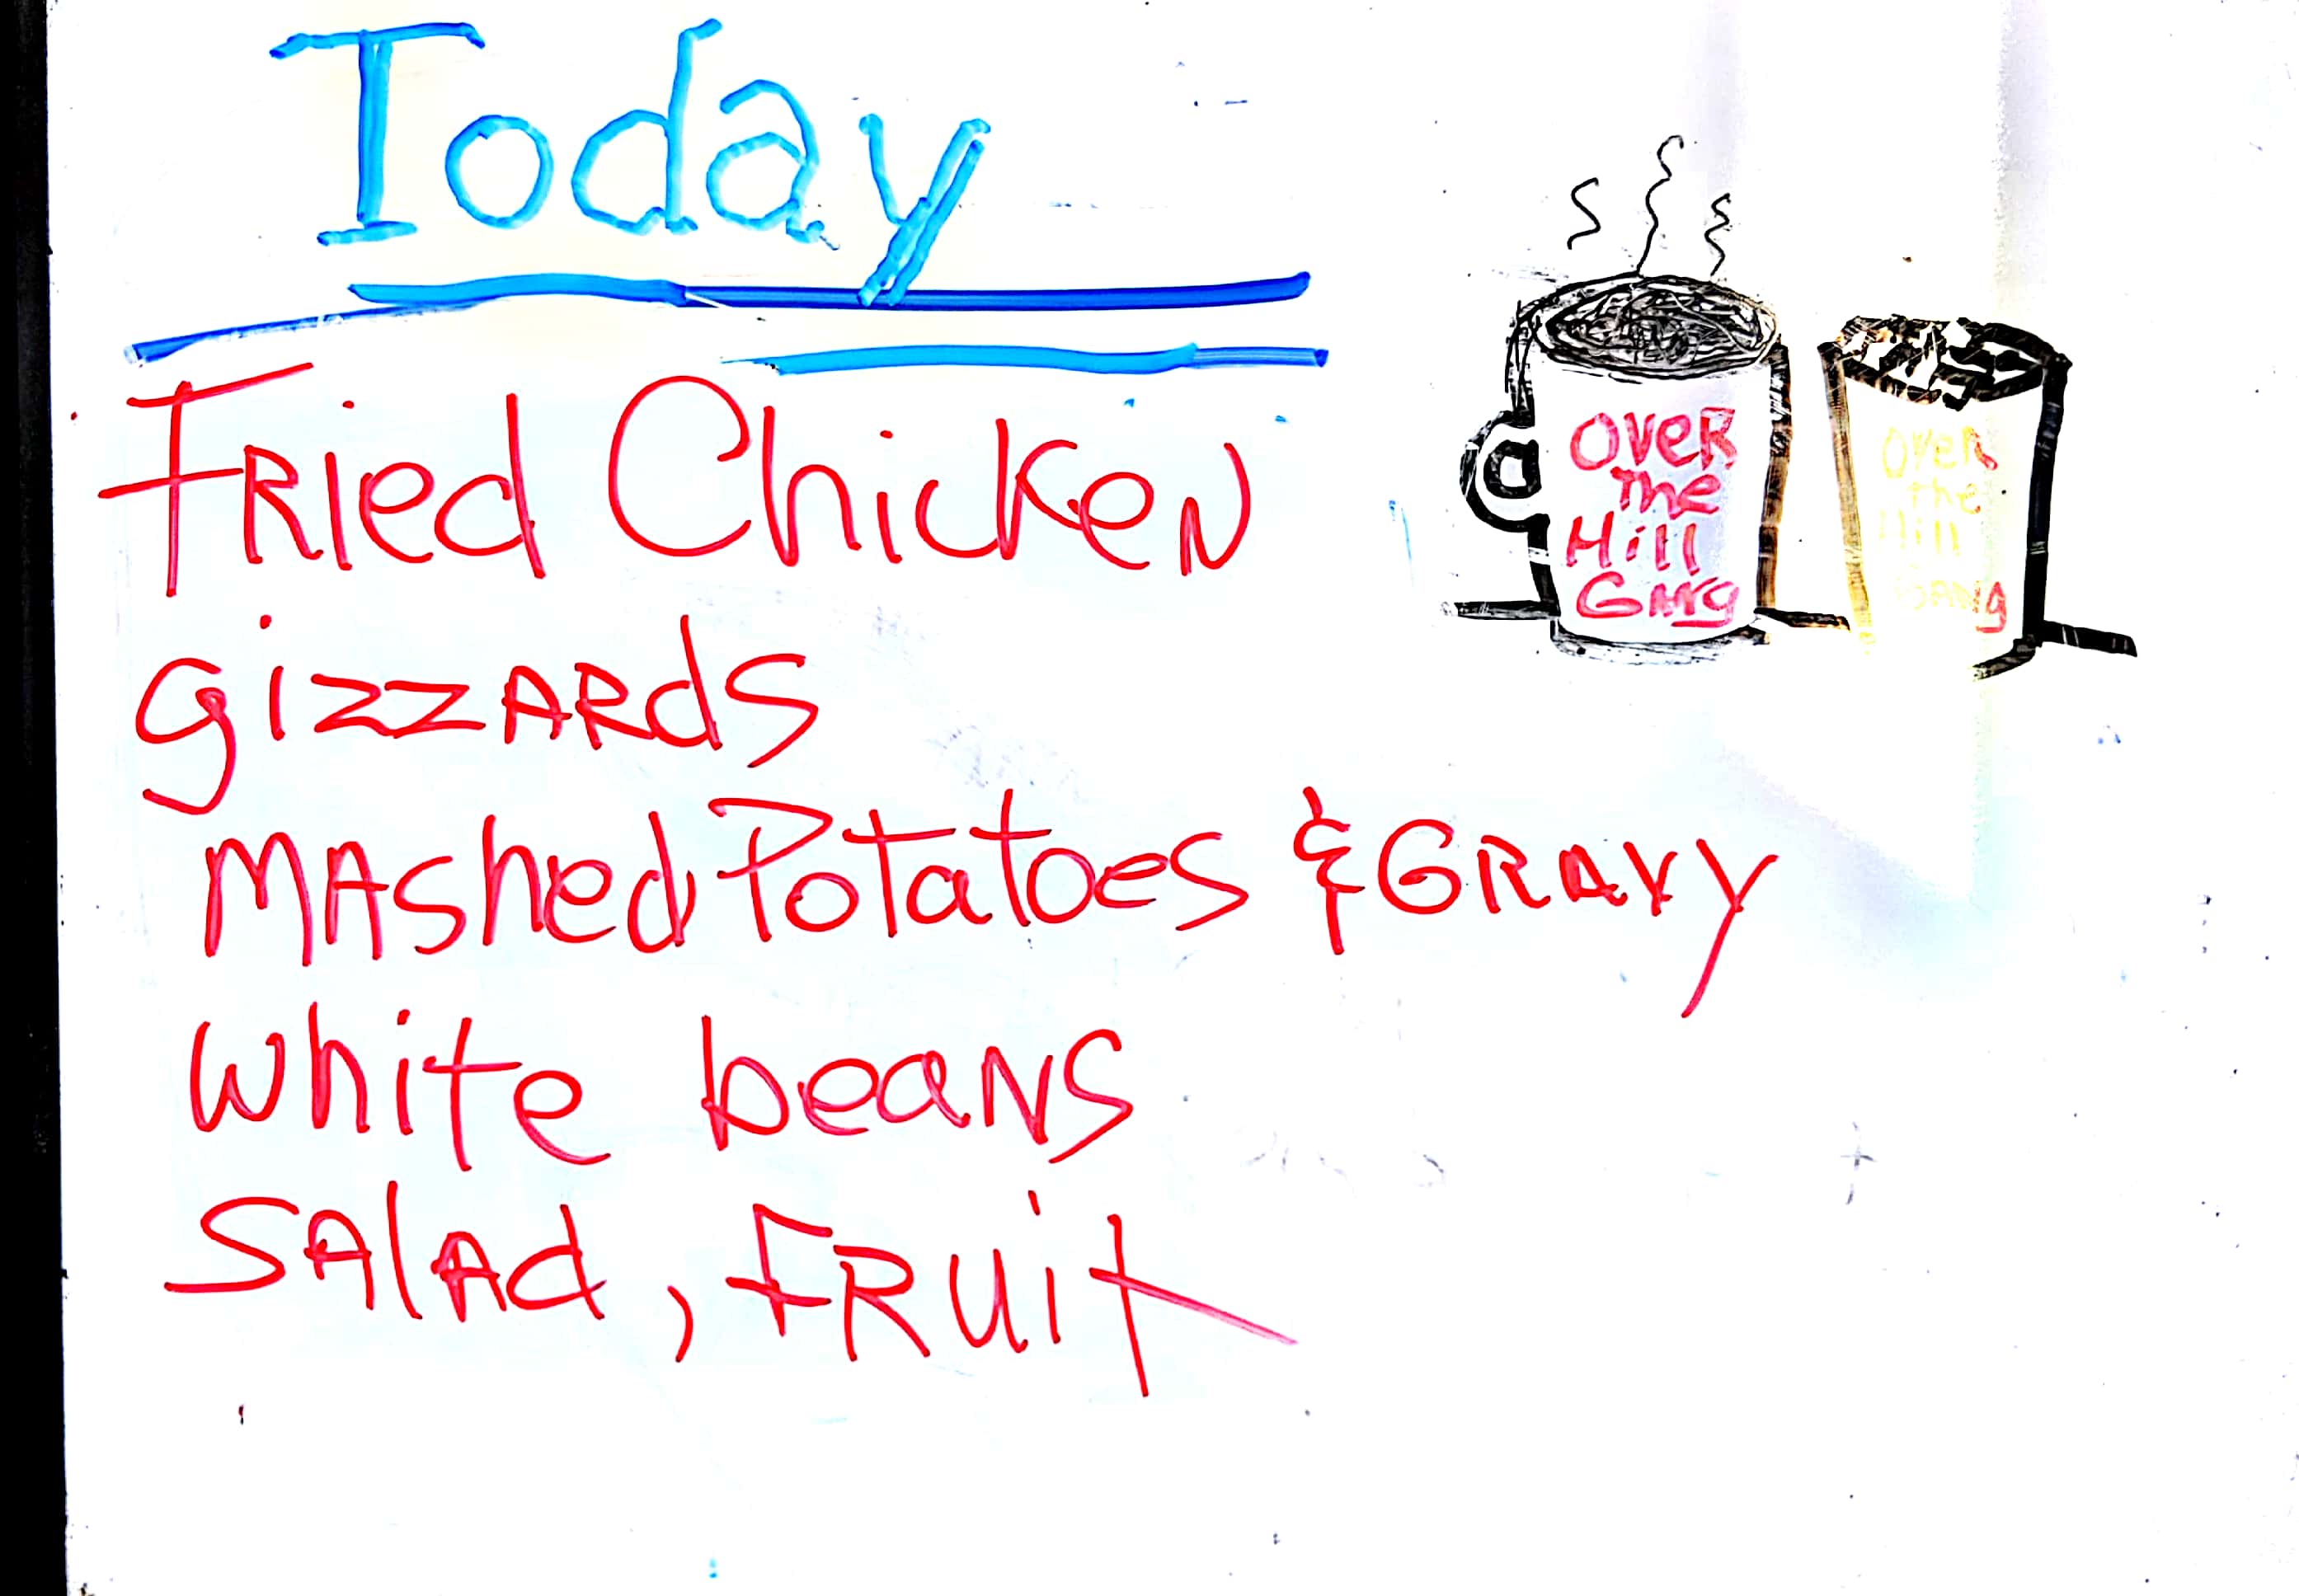 Today
Fried Chicken
gizzards
Mashed Potatoes & Gravy
white beans
Salad, Fruit
Over
The
Hill
Gang
Over
the
Hill
Gang